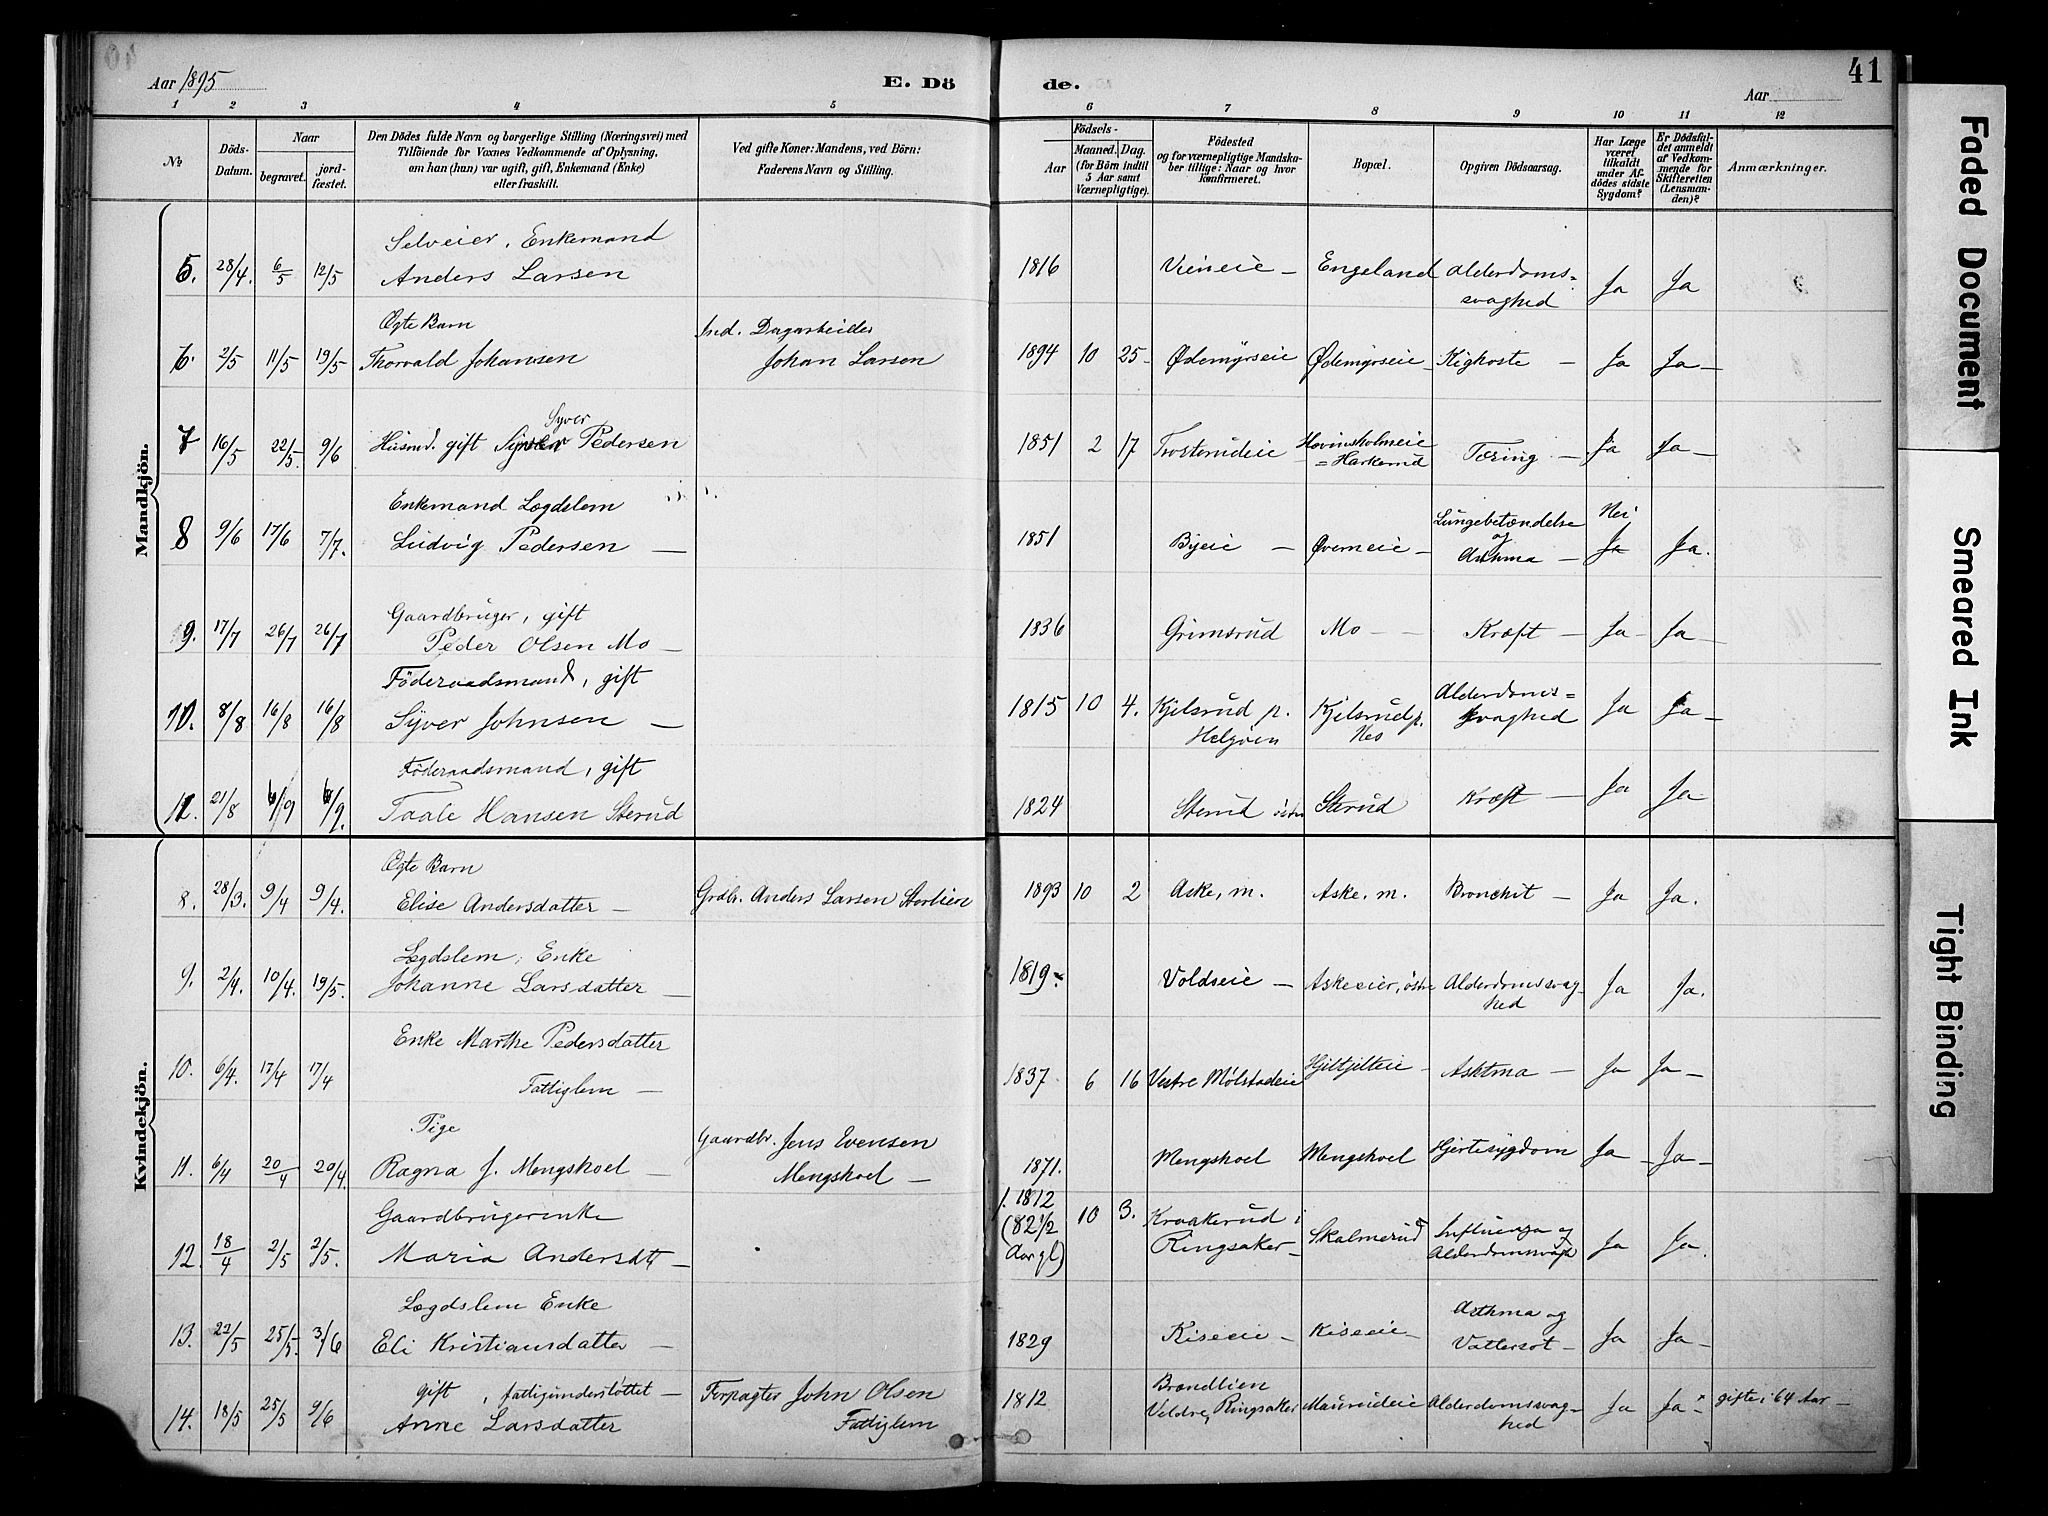 Aar 1895
E. Dö
de.
Aar
41
1 2 3 4 5 6 7 8 9 10 11 12
№
Döds-Datum.
Naar
begravet.
jord-fæstet.
Den Dödes fulde Navn og borgerlige Stilling (Næringsvei) med
Tilföiende for Voxnes Vedkommende af Oplysning,
om han (hun) var ugift, gift, Enkemand (Enke)
eller fraskilt.
Ved gifte Koner: Mandens, ved Börn:
Faderens Navn og Stilling.
Födsels-
Aar
Maaned. Dag.
(for Börn indtil
5 Aar samt
Værnepligtige).
Födested
og for værnepligtige Mandska-
ber tillige: Naar og hvor
konfirmeret.
Bopæl.
Opgiven Dödsaarsag.
Har Læge
været
tilkaldt
under Af-
dödes sidste
Sygdom?
Er Dödsfal-
det anmeldt
af Vedkom-
mende for
Skifteretten
(Lensman-
den)?
Anmærkninger.
Mandkjön.
Selveier, Enkemand
5. 28/4. 6/5 12/5 Anders Larsen 1816 Vieneie - Engeland Alderdoms- Ja Ja
svaghed
Ægte Barn Ind. Dagarbeider
6. 2/5 11/5 19/5 Thorvald Johansen Johan Larsen 1894 10 25. Ødemyrseie Ødemyrseie - Kighoste - Ja Ja -
Syver
7 16/5 22/5. 9/6 Husmd. gift Syver Pedersen 1851 2 17 Trosterudeie Hovinsholmeie Tæring - Ja Ja -
= Harkerud
Enkemand Lægdslem Lungebetændelse Nei
8 9/6 17/6 7/7. Ludvig Pedersen - 1851 Byeie - Øverneie - og Asthma - Ja Ja.
Gaardbruger, gift
9. 17/7 26/7 26/7 Peder Olsen Mo - 1836 Grimsrud Mo - - Kræft - Ja - Ja -
Föderaadsmand, gift
10. 8/8 16/8 16/8 Syver Johnsen - 1815 10 4. Kjelsrud p. Kjelsrud p. Alderdoms= Ja Ja -
Helgøen Nes svaghed
Föderaadsmand, gift
11. 21/8 6/9 6/9. Taale Hansen Sterud 1824 Sterud östre Sterud Kræft - Ja Ja
Kvindekjön.
Ægte Barn
8. 28/3. 9/4 9/4. Elise Andersdatter - Grdbr. Anders Larsen Storlien 1893 10 2 Aske, m. Aske, m. Bronchit - Ja Ja.
Lægdslem, Enke
9. 2/4. 10/4. 19/5. Johanne Larsdatter - 1819. Voldseie - Askeeier, östre Alderdomssvag- Ja Ja.
hed
Enke Marthe Pedersdatter
10. 6/4. 17/4 17/4 Fattiglem - 1837 6 16 Vestre Mølstadeie Hjeltjelteie - Asktma - Ja Ja -
Pige Gaardbr. Jens Evensen
11. 6/4 20/4 20/4. Ragna J. Mengskoel - Mengskoel - 1871. Mengskoel Mengskoel Hjertesygdom Ja - Ja -
Gaardbrugerenke f. 1812
(82 1/2
Aar gl)
12. 18/4 2/5 2/5. Maria Andersdt - 10 3. Kraakerud i Skalmerud Influenza og Ja Ja.
Ringsaker - Alderdomssvagh
Lægdslem Enke Asthma og
13. 22/5 25/5. 3/6 Eli Kristiansdatter - 1829 Kiseeie - Kiseeie - Vattersot - Ja Ja -
gift, fattigunderstøttet - Forpagter John Olsen Brændlien
14. 18/5 25/5 9/6 Anne Larsdatter Fattiglem 1812 Veldre, Ringsaker Maurudeie Alderdomssvag- Ja Ja - gifte i 64 Aar -
hed
Faded Document
Smeared Ink
Tight Binding